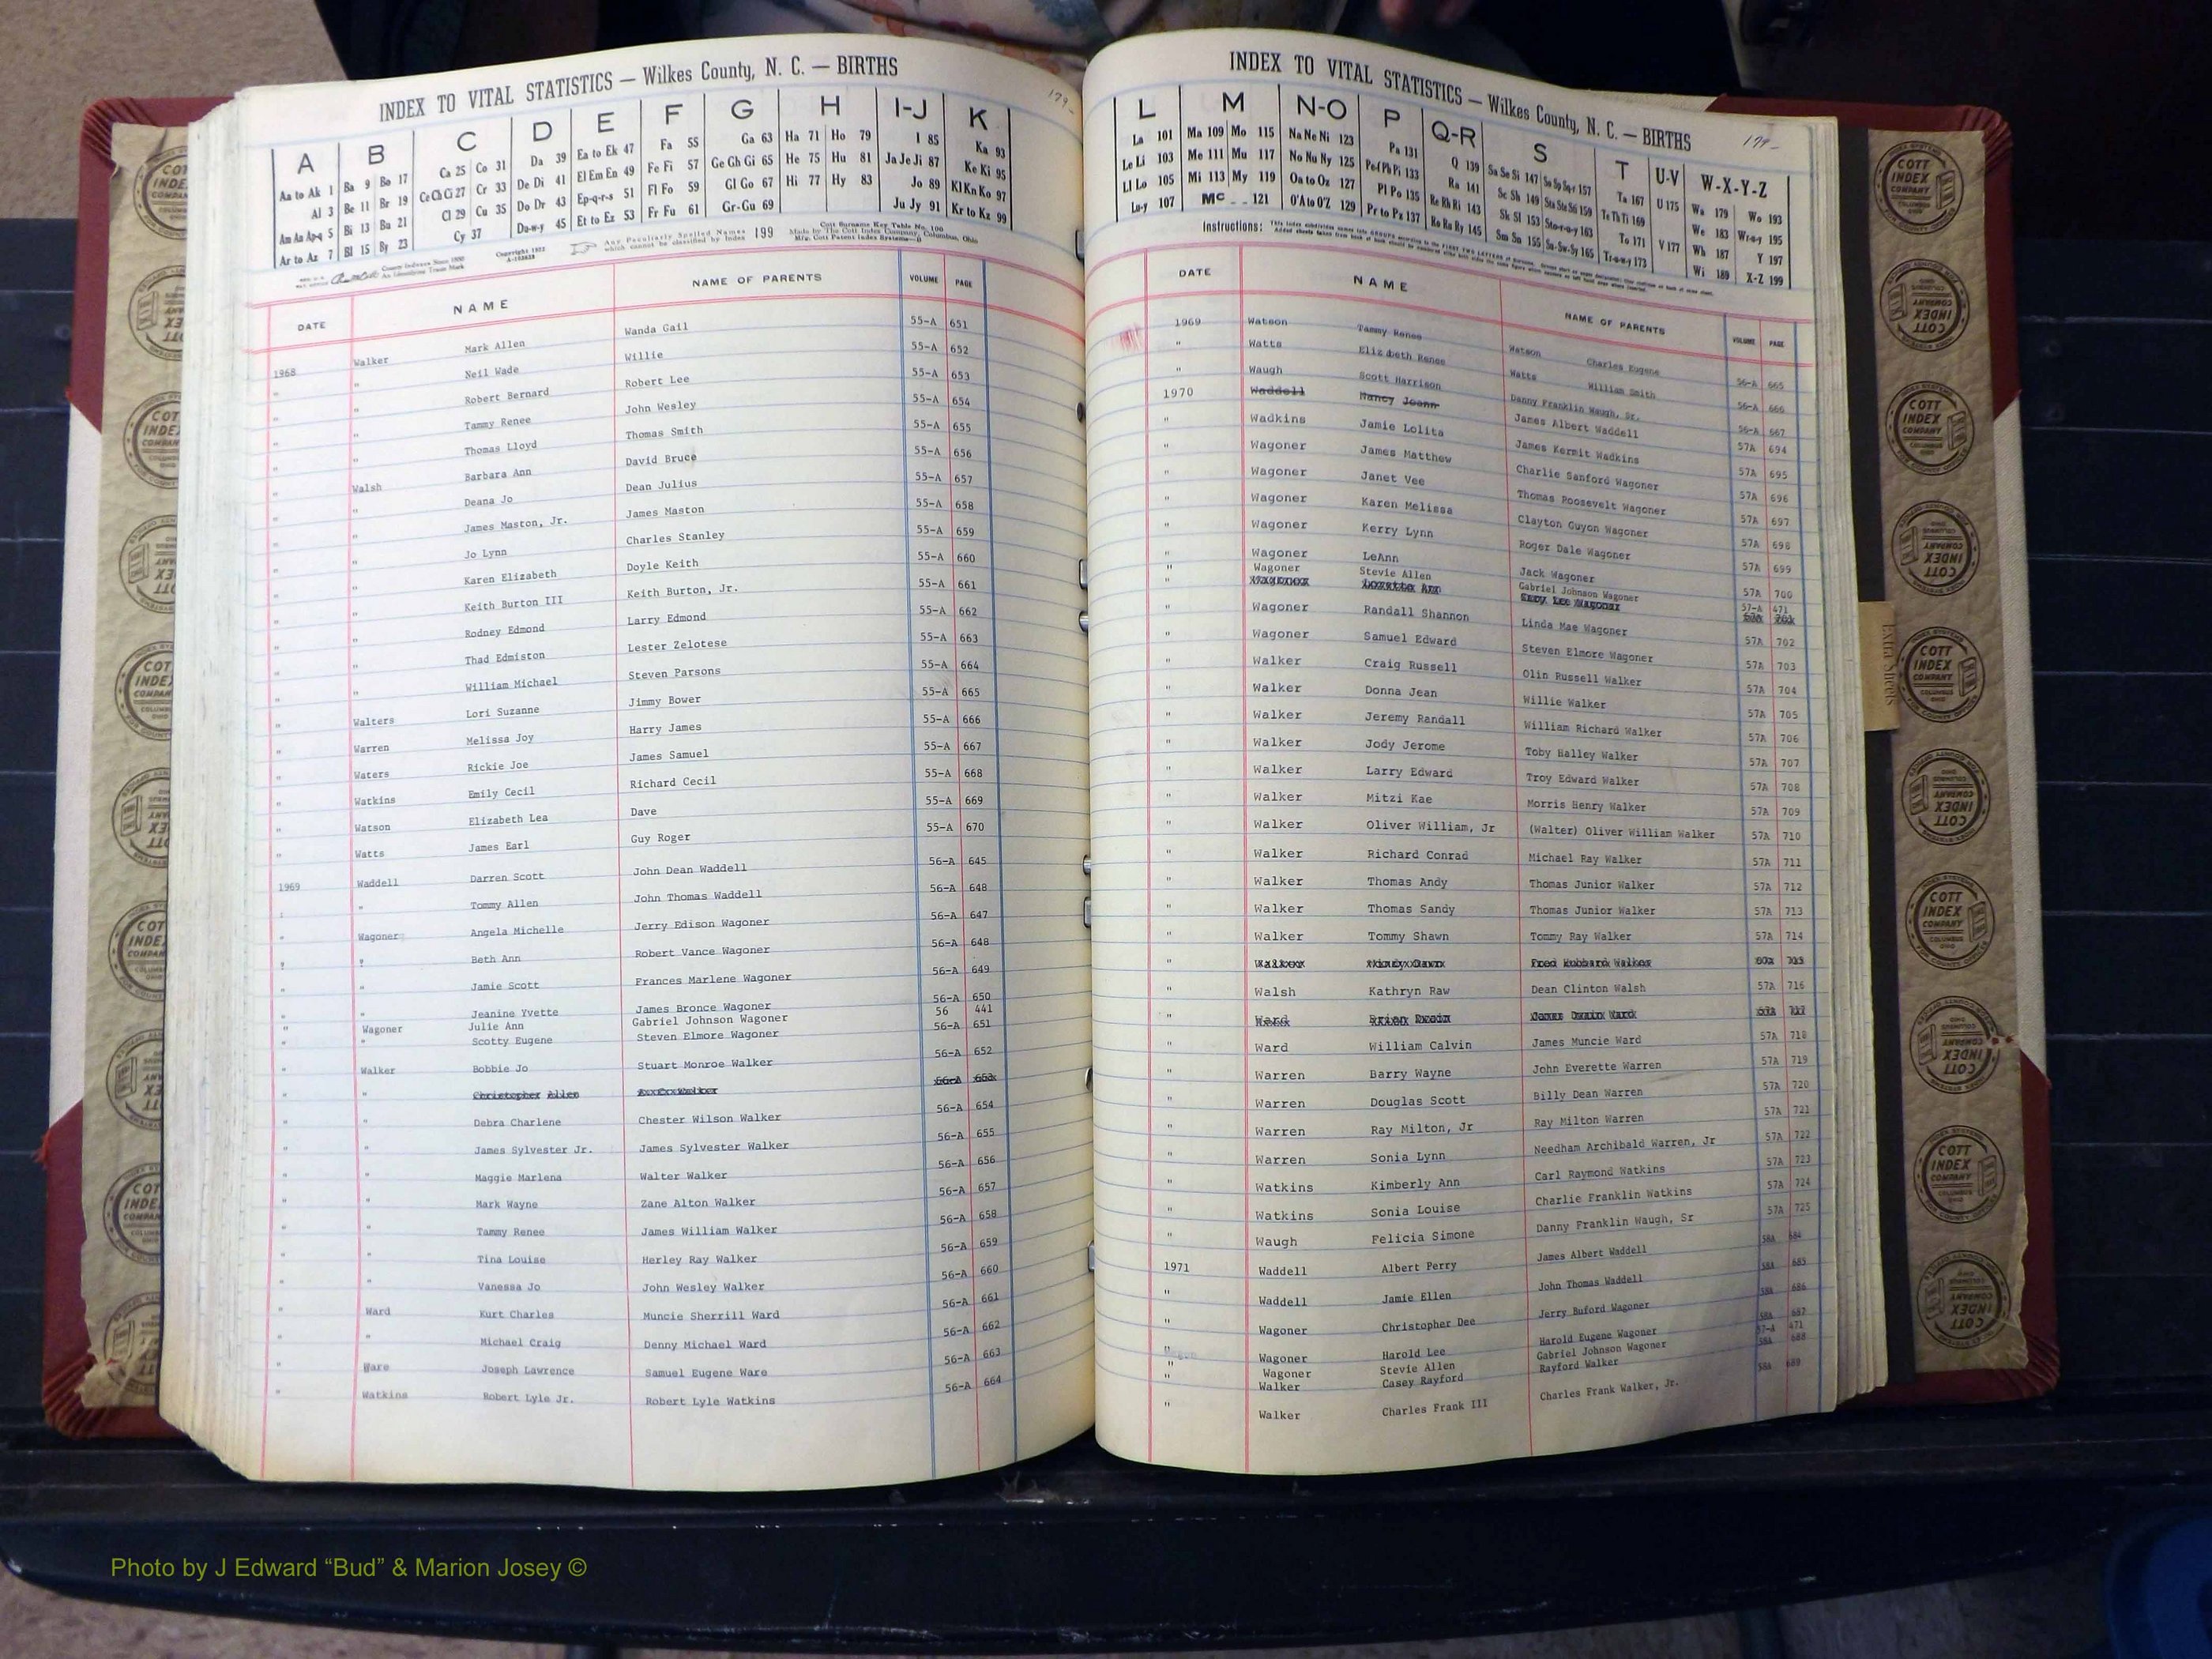 INDEX TO VITAL STATISTICS — Wilkes County, N. C. — BIRTHS
179-
A B C D E F G H I-J K
Aa to Ak 1 Ba 9 Bo 17 Ca 25 Co 31 Da 39 Ea to Ek 47 Fa 55 Ga 63 Ha 71 Ho 79 I 85 Ka 93
Al 3 Be 11 Br 19 Ce Ch Ci 27 Cr 33 De Di 41 El Em En 49 Fe Fi 57 Ge Gh Gi 65 He 75 Hu 81 Ja Je Ji 87 Ke Ki 95
Am Aa Ap-q 5 Bi 13 Bu 21 Cl 29 Cu 35 Do Dr 43 Ep-q-r-s 51 Fl Fo 59 Gl Go 67 Hi 77 Hy 83 Jo 89 Kl Kn Ko 97
Ar to Az 7 Bl 15 By 23 Cy 37 Du-w-y 45 Et to Ez 53 Fr Fu 61 Gr-Gu 69 Ju Jy 91 Kr to Kz 99
Any Peculiarly Spelled Names which cannot be classified by Index 199
Cott Surname Key Table No. 100
Made by The Cott Index Company, Columbus, Ohio
DATE NAME NAME OF PARENTS VOLUME PAGE
1968 Walker Mark Allen Wanda Gail 55-A 651
" " Neil Wade Willie 55-A 652
" " Robert Bernard Robert Lee 55-A 653
" " Tammy Renee John Wesley 55-A 654
" " Thomas Lloyd Thomas Smith 55-A 655
" Walsh Barbara Ann David Bruce 55-A 656
" " Deana Jo Dean Julius 55-A 657
" " James Maston, Jr. James Maston 55-A 658
" " Jo Lynn Charles Stanley 55-A 659
" " Karen Elizabeth Doyle Keith 55-A 660
" " Keith Burton III Keith Burton, Jr. 55-A 661
" " Rodney Edmond Larry Edmond 55-A 662
" " Thad Edmiston Lester Zelotese 55-A 663
" " William Michael Steven Parsons 55-A 664
" Walters Lori Suzanne Jimmy Bower 55-A 665
" Warren Melissa Joy Harry James 55-A 666
" Waters Rickie Joe James Samuel 55-A 667
" Watkins Emily Cecil Richard Cecil 55-A 668
" Watson Elizabeth Lea Dave 55-A 669
" Watts James Earl Guy Roger 55-A 670
1969 Waddell Darren Scott John Dean Waddell 56-A 645
" " Tommy Allen John Thomas Waddell 56-A 648
" Wagoner Angela Michelle Jerry Edison Wagoner 56-A 647
" " Beth Ann Robert Vance Wagoner 56-A 648
" " Jamie Scott Frances Marlene Wagoner 56-A 649
" " Jeanine Yvette James Bronce Wagoner 56-A 650
" Wagoner Julie Ann Gabriel Johnson Wagoner 56 441
" " Scotty Eugene Steven Elmore Wagoner 56-A 651
" Walker Bobbie Jo Stuart Monroe Walker 56-A 652
" " Christopher Allen Walker 56-A 653
" " Debra Charlene Chester Wilson Walker 56-A 654
" " James Sylvester Jr. James Sylvester Walker 56-A 655
" " Maggie Marlena Walter Walker 56-A 656
" " Mark Wayne Zane Alton Walker 56-A 657
" " Tammy Renee James William Walker 56-A 658
" " Tina Louise Herley Ray Walker 56-A 659
" " Vanessa Jo John Wesley Walker 56-A 660
" Ward Kurt Charles Muncie Sherrill Ward 56-A 661
" " Michael Craig Denny Michael Ward 56-A 662
" Ware Joseph Lawrence Samuel Eugene Ware 56-A 663
" Watkins Robert Lyle Jr. Robert Lyle Watkins 56-A 664
INDEX TO VITAL STATISTICS — Wilkes County, N. C. — BIRTHS
179-
L M N-O P Q-R S T U-V W-X-Y-Z
La 101 Ma 109 Mo 115 Na Ne Ni 123 Pa 131 Q 139 Sa Se Si 147 So Sp Sq-r 157 Ta 167 U 175 Wa 179 Wo 193
Le Li 103 Me 111 Mu 117 No Nu Ny 125 Pe Pf Ph Pi 133 Ra 141 Sc Sh 149 Sta Ste Sti 159 Te Th Ti 169 V 177 We 183 Wr-u-y 195
Ll Lo 105 Mi 113 My 119 Oa to Oz 127 Pl Po 135 Re Rh Ri 143 Sk Sl 153 Sto-r-u-y 163 To 171 Wh 187 Y 197
Lu-y 107 Mc 121 O'A to O'Z 129 Pr to Pz 137 Ro Ru Ry 145 Sm Sn 155 Su-Sw-Sy 165 Tr-u-w-y 173 Wi 189 X-Z 199
Instructions:
DATE NAME NAME OF PARENTS VOLUME PAGE
1969 Watson Tammy Renee Watson Charles Eugene 56-A 665
" Watts Elizabeth Renee Watts William Smith 56-A 666
" Waugh Scott Harrison Danny Franklin Waugh, Sr. 56-A 667
1970 Waddell Nancy Joann James Albert Waddell 57A 694
" Wadkins Jamie Lolita James Kermit Wadkins 57A 695
" Wagoner James Matthew Charlie Sanford Wagoner 57A 696
" Wagoner Janet Vee Thomas Roosevelt Wagoner 57A 697
" Wagoner Karen Melissa Clayton Guyon Wagoner 57A 698
" Wagoner Kerry Lynn Roger Dale Wagoner 57A 699
" Wagoner LeAnn Jack Wagoner 57A 700
" Wagoner Stevie Allen Gabriel Johnson Wagoner 57-A 471
" Loretta Ann Lee Wagoner
" Wagoner Randall Shannon Linda Mae Wagoner 57A 702
" Wagoner Samuel Edward Steven Elmore Wagoner 57A 703
" Walker Craig Russell Olin Russell Walker 57A 704
" Walker Donna Jean Willie Walker 57A 705
" Walker Jeremy Randall William Richard Walker 57A 706
" Walker Jody Jerome Toby Halley Walker 57A 707
" Walker Larry Edward Troy Edward Walker 57A 708
" Walker Mitzi Kae Morris Henry Walker 57A 709
" Walker Oliver William, Jr (Walter) Oliver William Walker 57A 710
" Walker Richard Conrad Michael Ray Walker 57A 711
" Walker Thomas Andy Thomas Junior Walker 57A 712
" Walker Thomas Sandy Thomas Junior Walker 57A 713
" Walker Tommy Shawn Tommy Ray Walker 57A 714
" Walker Dawn Fred Hubbard Walker
" Walsh Kathryn Raw Dean Clinton Walsh 57A 716
" Ward Brian Ward
" Ward William Calvin James Muncie Ward 57A 718
" Warren Barry Wayne John Everette Warren 57A 719
" Warren Douglas Scott Billy Dean Warren 57A 720
" Warren Ray Milton, Jr Ray Milton Warren 57A 721
" Warren Sonia Lynn Needham Archibald Warren, Jr 57A 722
" Watkins Kimberly Ann Carl Raymond Watkins 57A 723
" Watkins Sonia Louise Charlie Franklin Watkins 57A 724
" Waugh Felicia Simone Danny Franklin Waugh, Sr 57A 725
1971 Waddell Albert Perry James Albert Waddell 58A 684
" Waddell Jamie Ellen John Thomas Waddell 58A 685
" Wagoner Christopher Dee Jerry Buford Wagoner 58A 686
" Wagoner Harold Lee Harold Eugene Wagoner 58A 687
" Wagoner Stevie Allen Gabriel Johnson Wagoner 57-A 471
" Walker Casey Rayford Rayford Walker 58A 688
" Walker Charles Frank III Charles Frank Walker, Jr. 58A 689
Extra Sheets
COTT INDEX COMPANY
Photo by J Edward “Bud” & Marion Josey ©